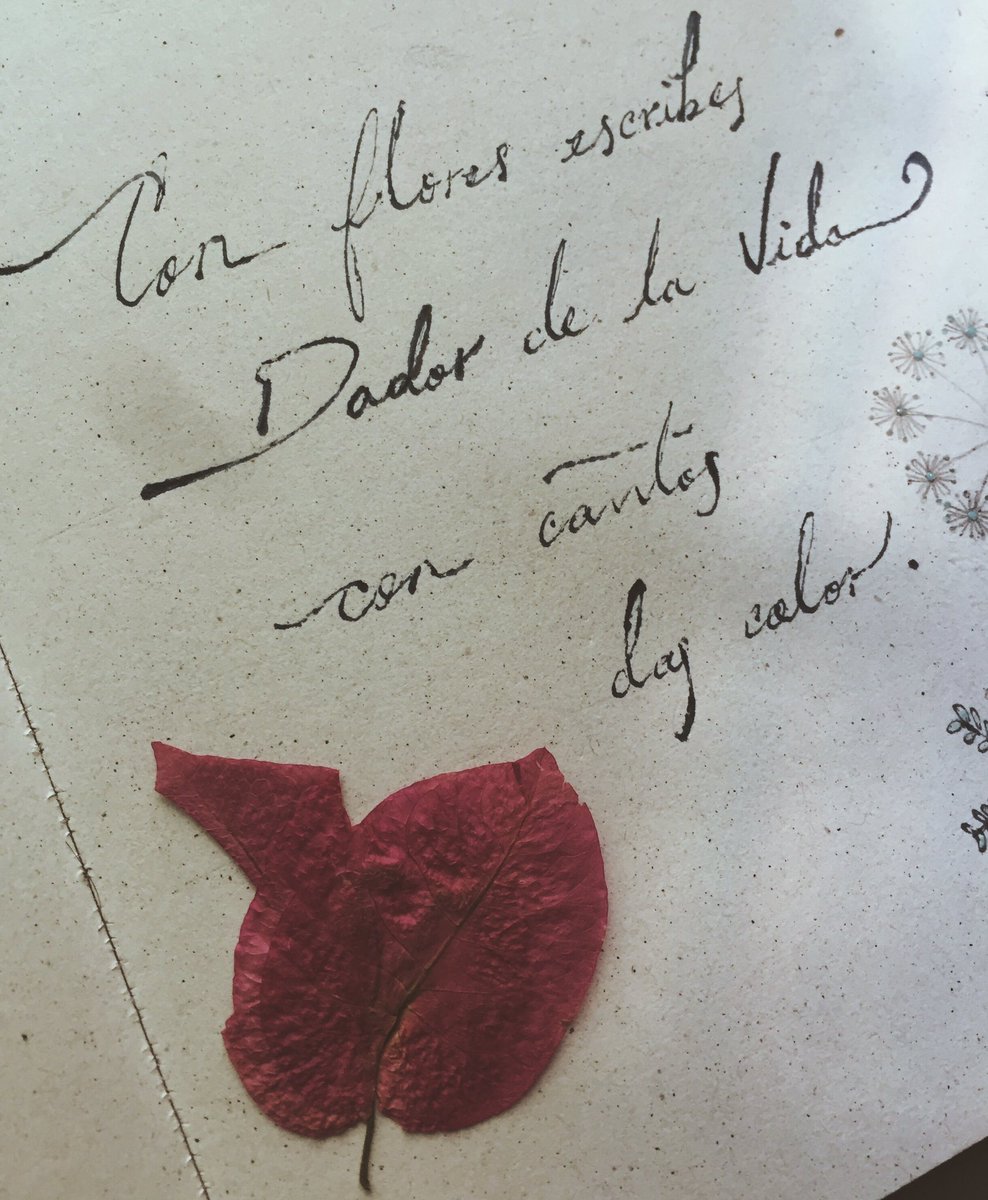 Con flores escribes
Dador de la Vida
con cantos
das color.